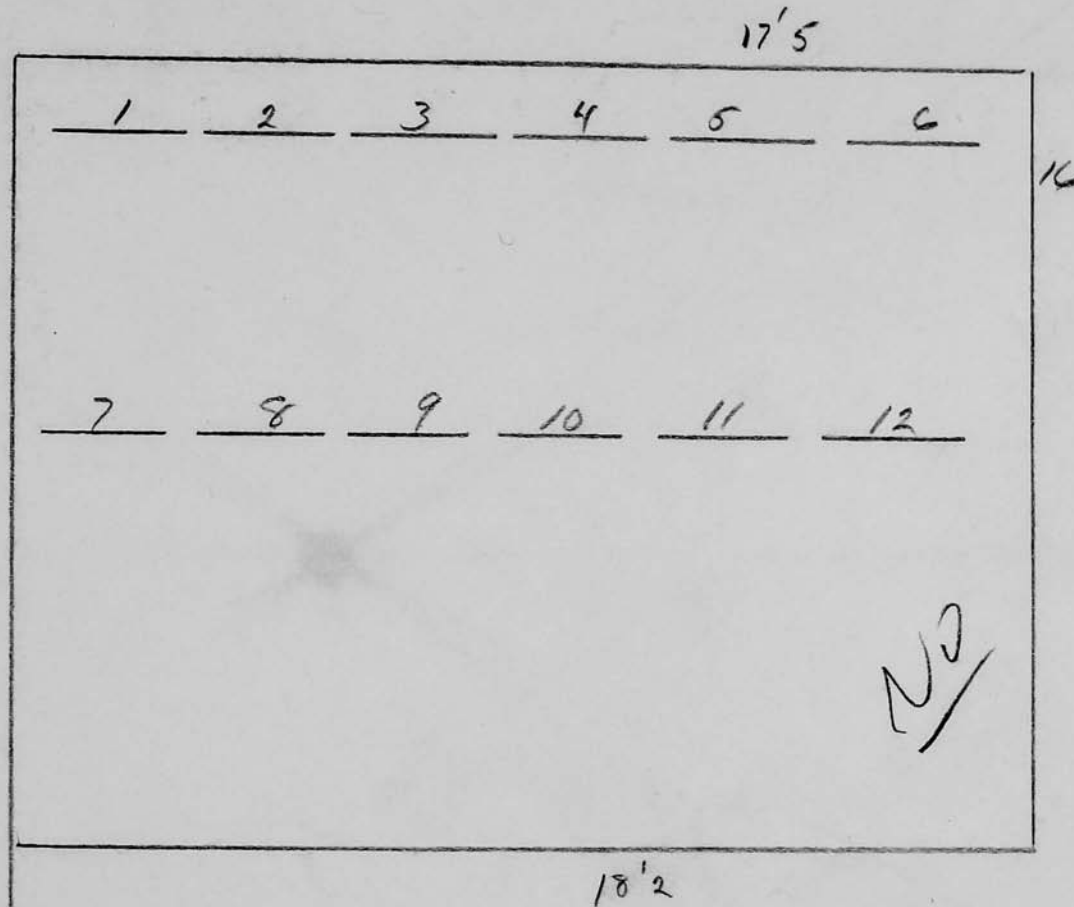 17'5
1 2 3 4 5 6
16
7 8 9 10 11 12
NO
18'2